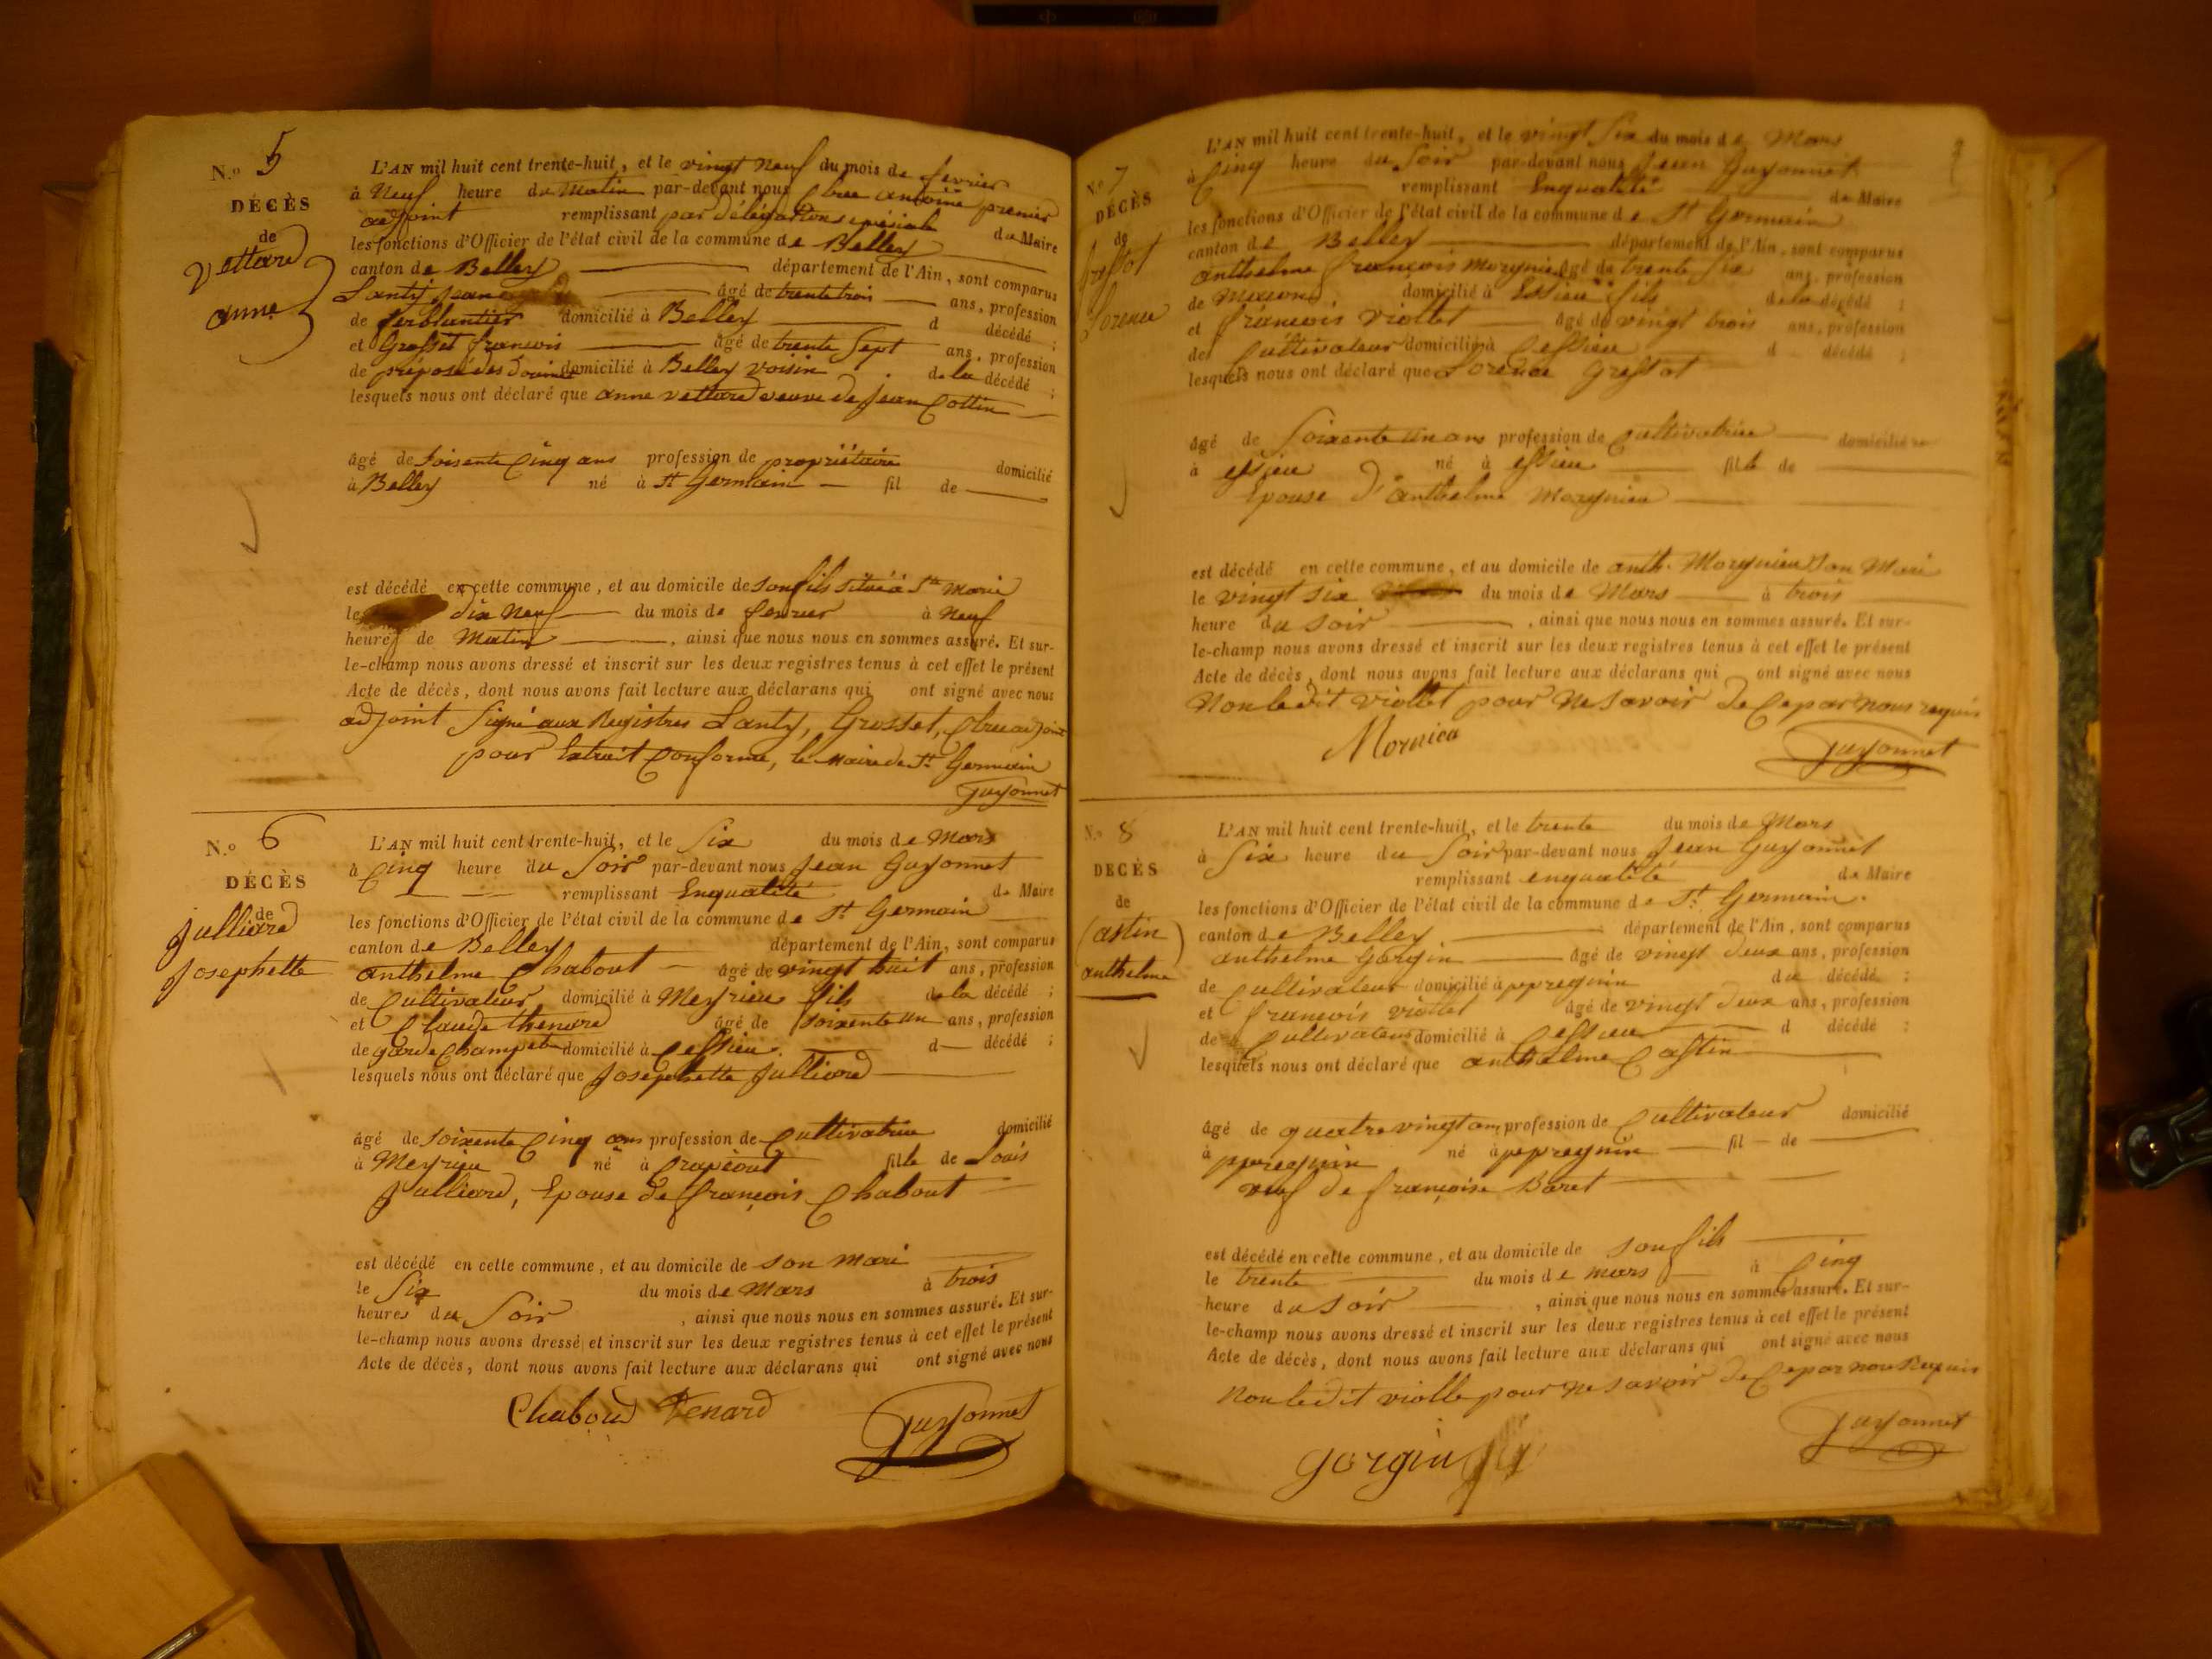 N.o 5
DÉCÈS
de
Vettard
anne
L'AN mil huit cent trente-huit, et le vingt neuf du mois de fevrier
à Neuf heure du Matin par-devant nous antoine premier
adjoint remplissant par délégation spéciale du Maire
les fonctions d'Officier de l'état civil de la commune de Belley
canton de Belley département de l'Ain, sont comparus
Lanty Jean âgé de trente trois ans, profession
de ferblantier domicilié à Belley d décédé ;
et Grosset francois âgé de trente Sept ans, profession
de préposé des Douanes domicilié à Belley voisin de la décédé ;
lesquels nous ont déclaré que anne vettard veuve de Jean Cottin
âgé de Soisente Cinq ans profession de propriétaire domicilié
à Belley né à St Germain fil de
est décédé en cette commune, et au domicile de son fils situé à Ste Marie
le dix Neuf du mois de fevrier à Neuf
heures de Matin, ainsi que nous nous en sommes assuré. Et sur-
le-champ nous avons dressé et inscrit sur les deux registres tenus à cet effet le présent
Acte de décès, dont nous avons fait lecture aux déclarans qui ont signé avec nous
adjoint Signé aux Registres Lanty, Grosset, adjoint
pour Extrait Conforme, le Maire de St Germain
Guyonnet
N.o 6
DÉCÈS
de
Julliard
Josephette
L'AN mil huit cent trente-huit, et le Six du mois de Mars
à Cinq heure du Soir par-devant nous Jean Guyonnet
remplissant Enqualité de Maire
les fonctions d'Officier de l'état civil de la commune de St Germain
canton de Belley département de l'Ain, sont comparus
anthelme Chabout âgé de vingt huit ans, profession
de Cultivateur domicilié à Meyrieu fils de la décédé ;
et Claude thenard âgé de soixente un ans, profession
de garde Champetre domicilié à Cessieu d décédé ;
lesquels nous ont déclaré que Josephette Julliard
âgé de soixente Cinq ans profession de Cultivatrice domicilié
à Meyrieu né à Crapéout fille de Louis
Julliard, Epouse de françois Chabout
est décédé en cette commune, et au domicile de son mari
le Six du mois de Mars à trois
heures du Soir, ainsi que nous nous en sommes assuré. Et sur-
le-champ nous avons dressé et inscrit sur les deux registres tenus à cet effet le présent
Acte de décès, dont nous avons fait lecture aux déclarans qui ont signé avec nous
Chaboud Tenard
Guyonnet
N.o 7
DÉCÈS
de
Greffot
Lorence
L'AN mil huit cent trente-huit, et le vingt Six du mois de Mars
à Cinq heure du Soir par-devant nous Jean Guyonnet
remplissant Enqualité de Maire
les fonctions d'Officier de l'état civil de la commune de St Germain
canton de Belley département de l'Ain, sont comparus
anthelme françois Morgnieu âgé de trente Six ans, profession
de Macon domicilié à Essieu fils de la décédé ;
et françois Viollet âgé de vingt trois ans, profession
de Cultivateur domicilié à Cessieu d décédé ;
lesquels nous ont déclaré que Lorence Greffot
âgé de Soixente un ans profession de Cultivatrice domicilié
à essieu né à essieu fille de
Epouse d'anthelme Morgnieu
est décédé en cette commune, et au domicile de anth. Morgnieu Son Mari
le vingt six du mois de Mars à trois
heure du soir, ainsi que nous nous en sommes assuré. Et sur-
le-champ nous avons dressé et inscrit sur les deux registres tenus à cet effet le présent
Acte de décès, dont nous avons fait lecture aux déclarans qui ont signé avec nous
Non ledit viollet pour ne savoir de Ce par nous requis
Mornieu
Guyonnet
N.o 8
DÉCÈS
de
Castin
anthelme
L'AN mil huit cent trente-huit, et le trente du mois de Mars
à Six heure du Soir par-devant nous Jean Guyonnet
remplissant enqualité de Maire
les fonctions d'Officier de l'état civil de la commune de St Germain.
canton de Belley département de l'Ain, sont comparus
anthelme Gorgin âgé de vingt deux ans, profession
de Cultivateur domicilié à appregnin du décédé ;
et françois viollet âgé de vingt deux ans, profession
de Cultivateur domicilié à Cessieu d décédé ;
lesquels nous ont déclaré que anthelme Castin
âgé de quatre vingt ans profession de Cultivateur domicilié
à ppregnin né à appregnin fil de
veuf de françoise Baret
est décédé en cette commune, et au domicile de son fils
le trente du mois de mars à Cinq
heure du soir, ainsi que nous nous en sommes assuré. Et sur-
le-champ nous avons dressé et inscrit sur les deux registres tenus à cet effet le présent
Acte de décès, dont nous avons fait lecture aux déclarans qui ont signé avec nous
Non ledit violle pour ne savoir de Ce par nous Requis
Guyonnet
gorgin